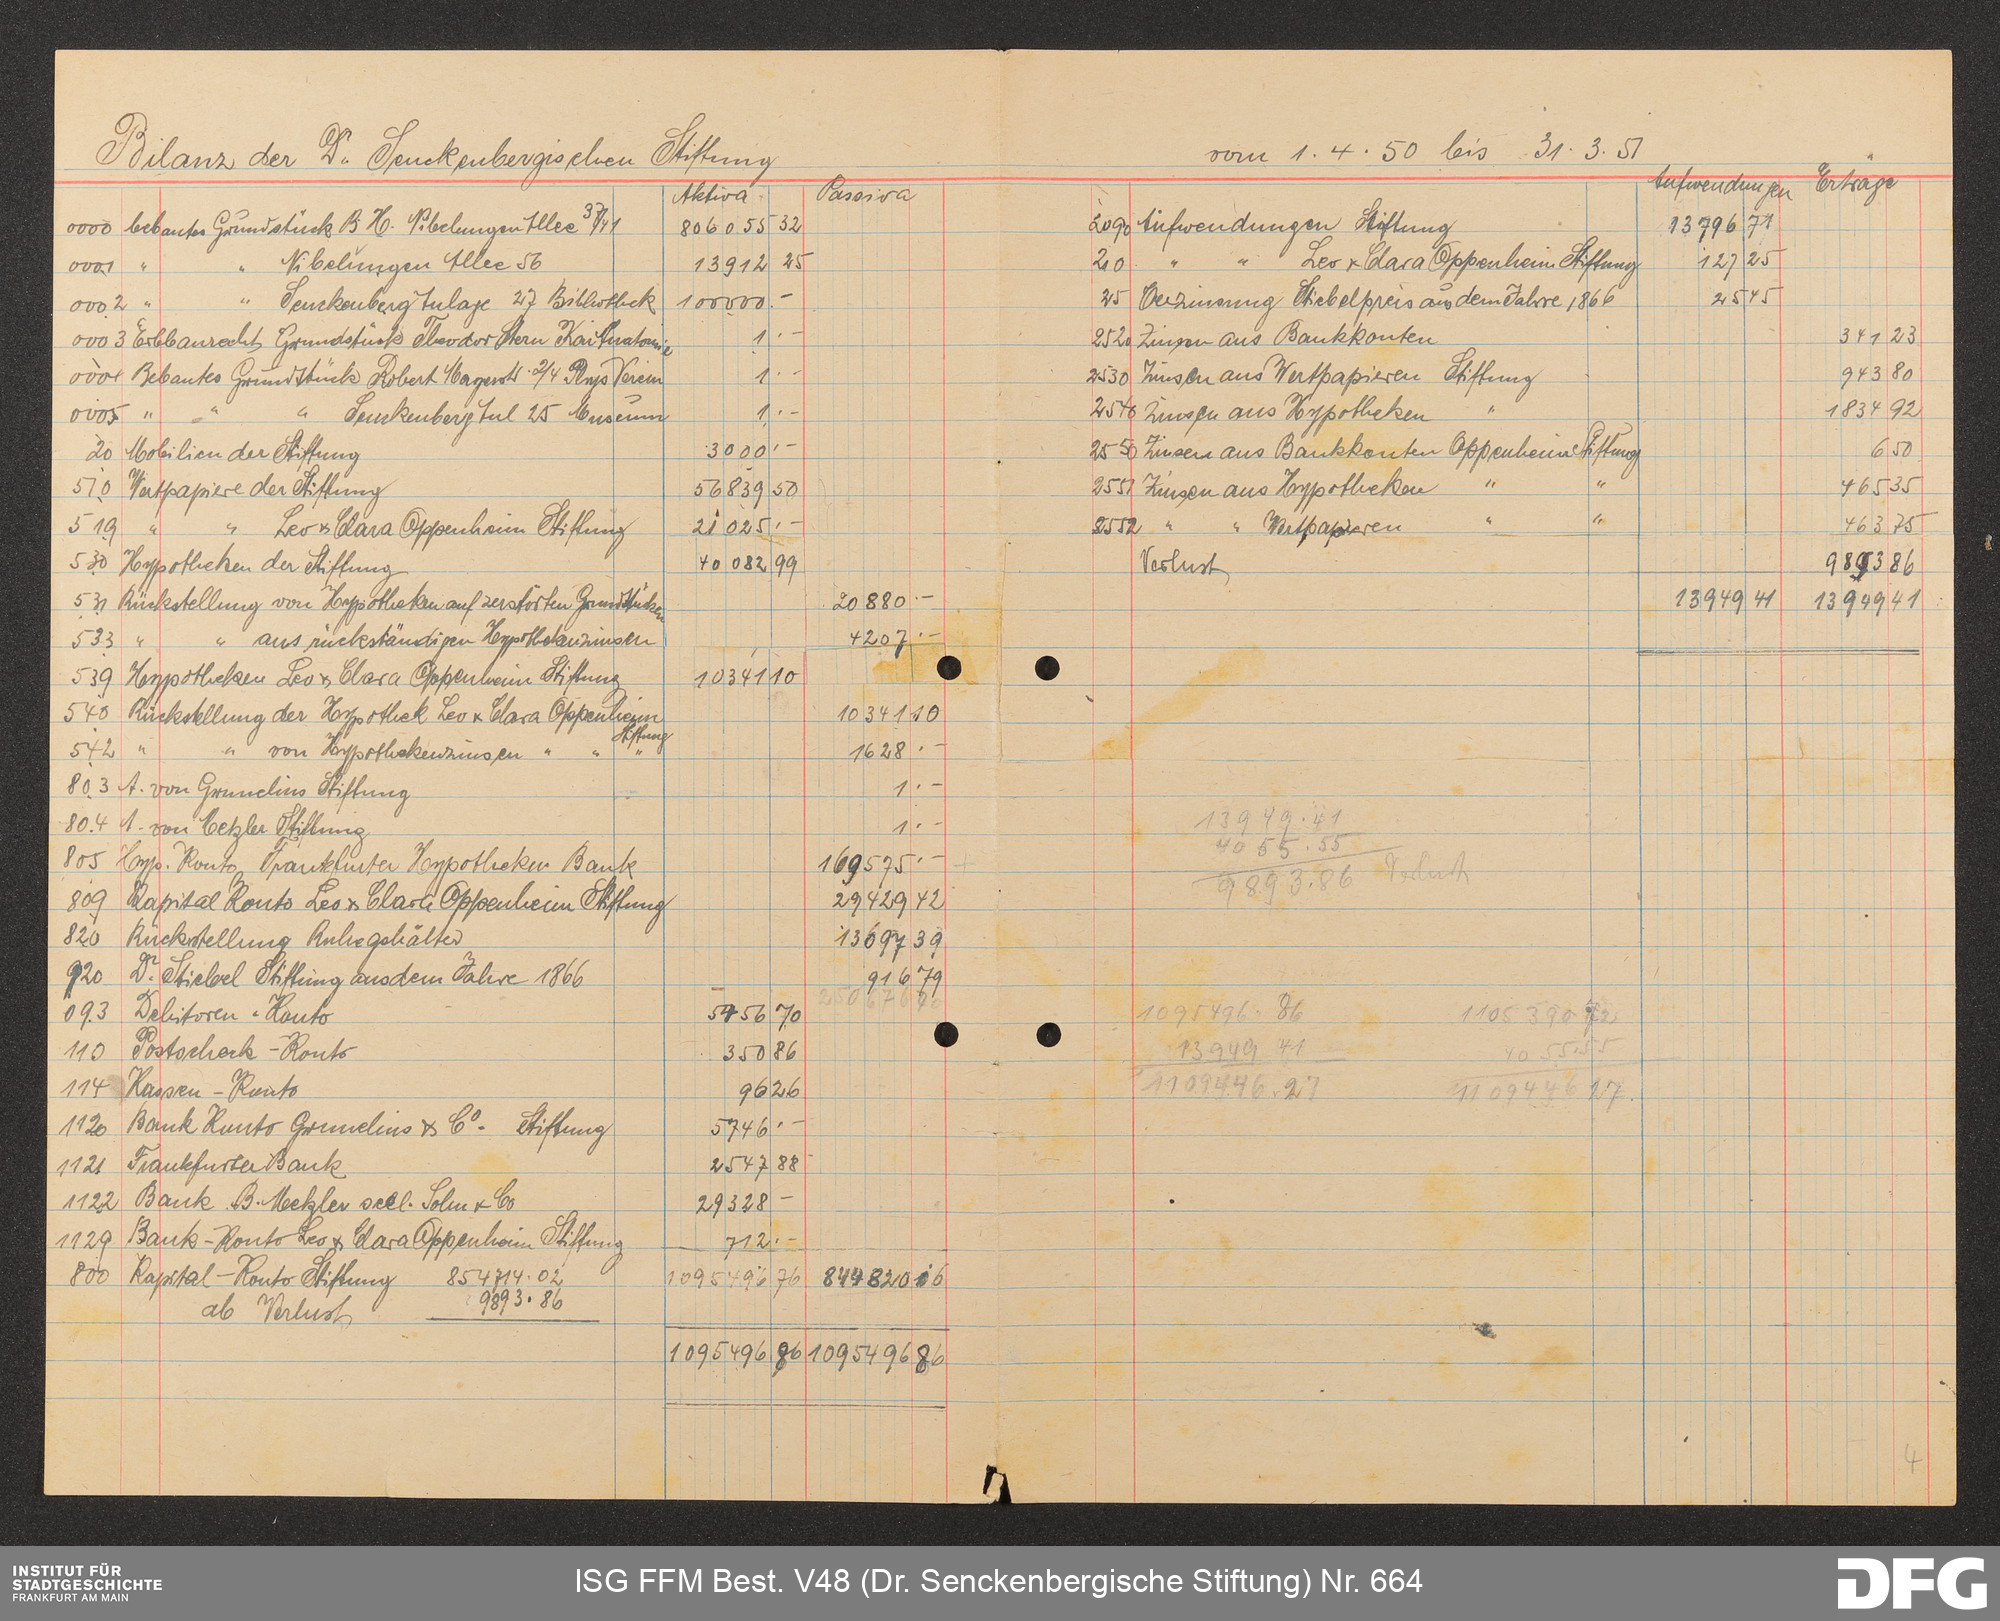 Bilanz der Dr. Senckenbergischen Stiftung
Aktiva Passiva
0000 bebautes Grundstück B H. Nibelungen Allee 37/41 806055 32
0001 " " Nibelungen Allee 56 13912 25
0002 " " Senckenberg Anlage 27 Bibliothek 100000 -
0003 Erbbaurecht Grundstück Theodor Stern Kai Anatomie 1 . -
0004 Bebautes Grundstück Robert Mayerstr. 2/4 Phys Verein 1 . -
0005 " " " Senckenberg Anl 25 Museum 1 . -
20 Mobilien der Stiftung 3000 . -
510 Wertpapiere der Stiftung 56839 50
519 " " Leo & Clara Oppenheim Stiftung 21025 . -
530 Hypotheken der Stiftung 40082 99
531 Rückstellung von Hypotheken auf zerstörten Grundstücken 20880 . -
533 " " aus rückständigen Hypothekenzinsen 4207 . -
539 Hypotheken Leo & Clara Oppenheim Stiftung 10341 10
540 Rückstellung der Hypothek Leo & Clara Oppenheim Stiftung 10341 10
542 " " von Hypothekenzinsen " " " 1628 . -
803 A. von Grunelius Stiftung 1 . -
804 A. von Metzler Stiftung 1 . -
805 Hyp. Konto Frankfurter Hypotheken Bank 169575 . -
809 Kapital Konto Leo & Clara Oppenheim Stiftung 29429 42
820 Rückstellung Ruhegehälter 13697 39
920 Dr. Stiebel Stiftung aus dem Jahre 1866 916 79
093 Debitoren - Konto 5456 70
110 Postscheck - Konto 350 86
114 Kassen - Konto 96 26
1120 Bank Konto Grunelius & Co - Stiftung 5746 . -
1121 Frankfurter Bank 2547 88
1122 Bank B. Metzler seel. Sohn & Co 29328 -
1129 Bank - Konto Leo & Clara Oppenheim Stiftung 712 . -
800 Kapital - Konto Stiftung 854714.02 1095496 76 844820 16
ab Verlust 9893.86
1095496 86 1095496 86
vom 1.4.50 bis 31.3.51
Aufwendungen Erträge
2090 Aufwendungen Stiftung 13796 71
210 " " Leo & Clara Oppenheim Stiftung 127 25
25 Verzinsung Stiebelpreis aus dem Jahre 1866 25 45
2520 Zinsen aus Bankkonten 341 23
2530 Zinsen aus Wertpapieren Stiftung 943 80
2540 Zinsen aus Hypotheken " 1834 92
2550 Zinsen aus Bankkonten Oppenheim Stiftung 6 50
2551 Zinsen aus Hypotheken " " 465 35
2552 " " Wertpapieren " " 463 75
Verlust 9893 86
13949 41 13949 41
13949.41
4055.55
9893.86 Verlust
1095496.86 1105390.72
13949 41 4055.55
1109446.27 1109446 27
4
INSTITUT FÜR
STADTGESCHICHTE
FRANKFURT AM MAIN
ISG FFM Best. V48 (Dr. Senckenbergische Stiftung) Nr. 664
DFG